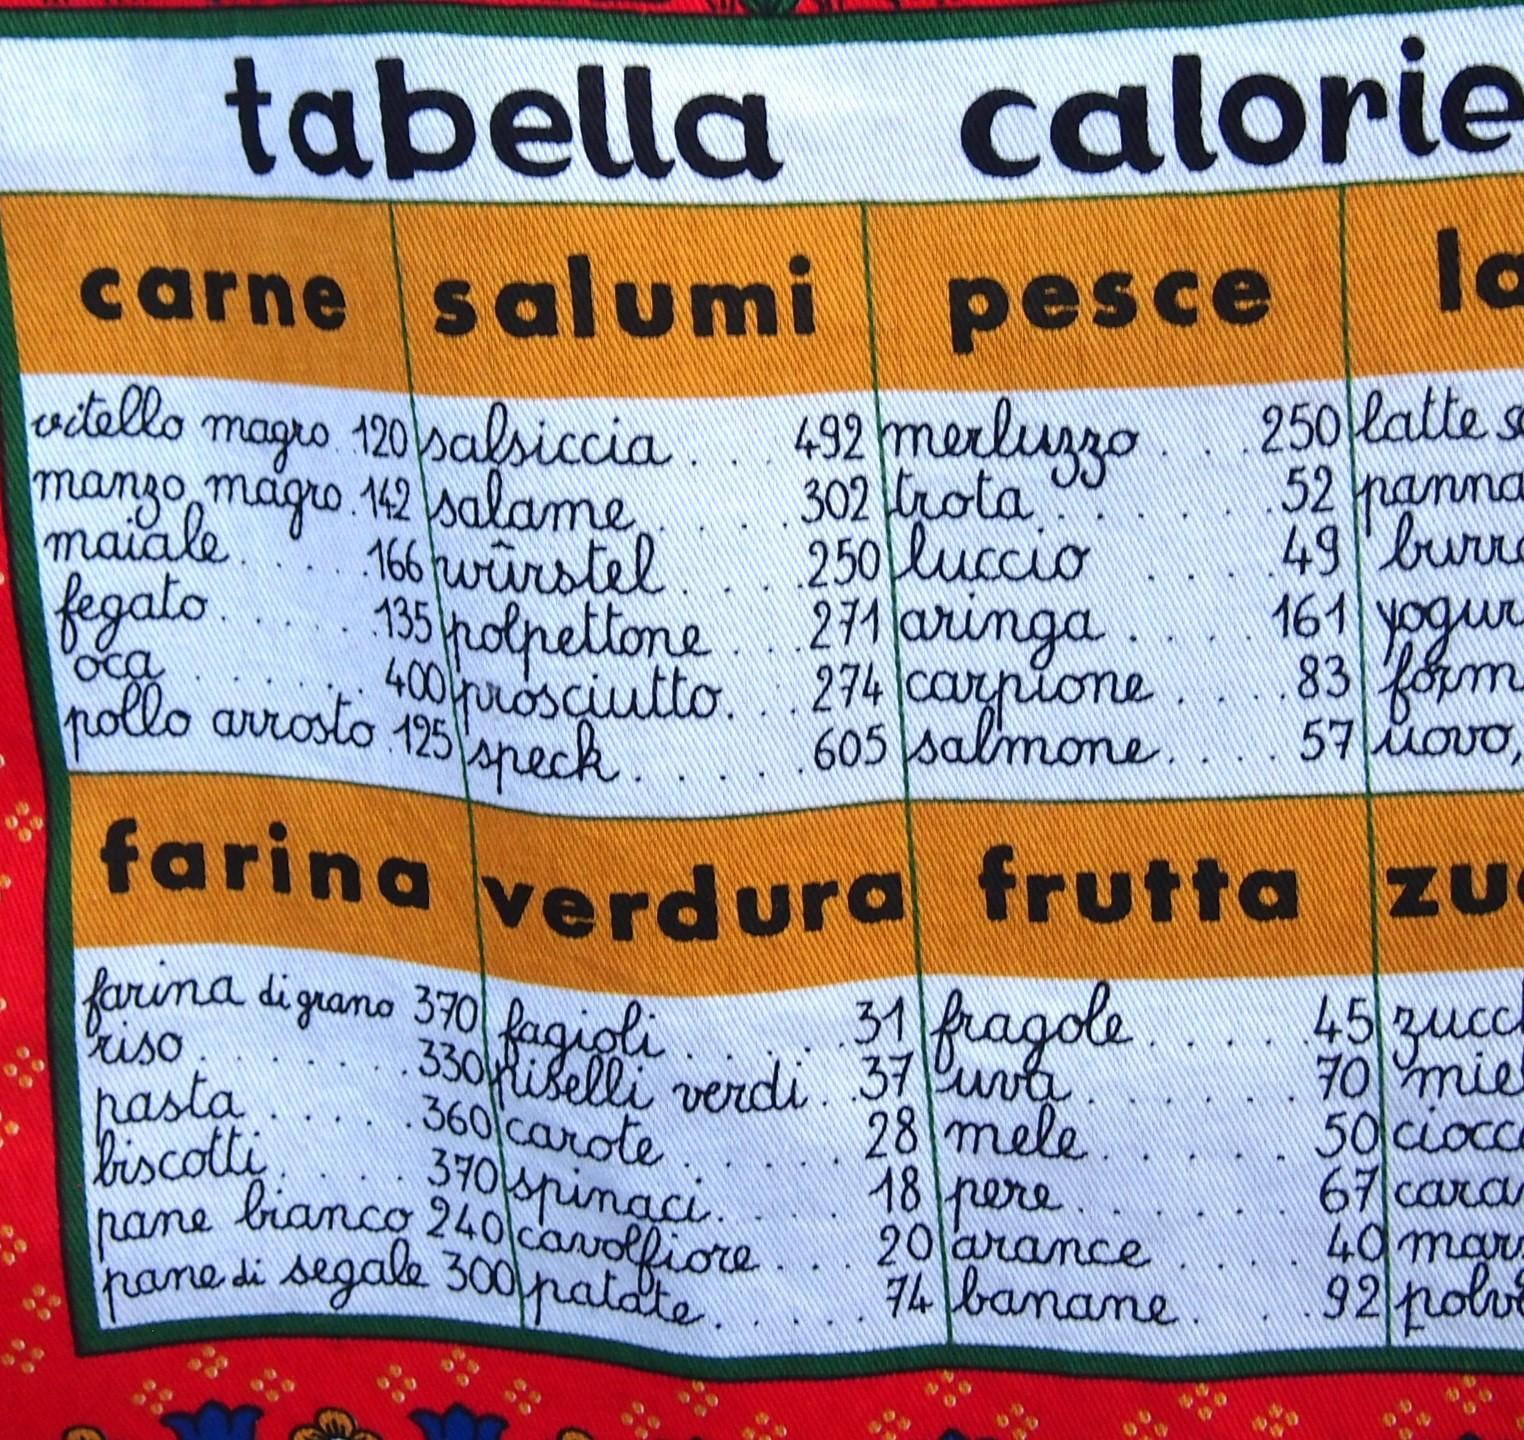 tabella calorie
carne salumi pesce
vitello magro 120 salsiccia . . . 492 merluzzo . . . 250 latte
manzo magro . 142 salame . . . . . 302 trota . . . . . . 52 panna
maiale . . . . . 166 würstel . . . . 250 luccio . . . . 49
fegato . . . . . . 135 polpettone . . . 271 aringa . . . . 161
oca . . . . . . . 400 prosciutto . . . 274 carpione . . . . 83
pollo arrosto . 125 speck . . . . . . 605 salmone . . . . 57 uovo,
farina verdura frutta
farina di grano 370 fagioli . . . . . . 31 fragole . . . . . 45
riso . . . . . . . 330 piselli verdi . . 37 uva . . . . . . . 70
pasta . . . . . 360 carote . . . . . . 28 mele . . . . . . 50
biscotti . . . . 370 spinaci . . . . . 18 pere . . . . . . . 67
pane bianco 240 cavolfiore . . . 20 arance . . . . 40
pane di segale 300 patate . . . . . . 74 banane . . . 92